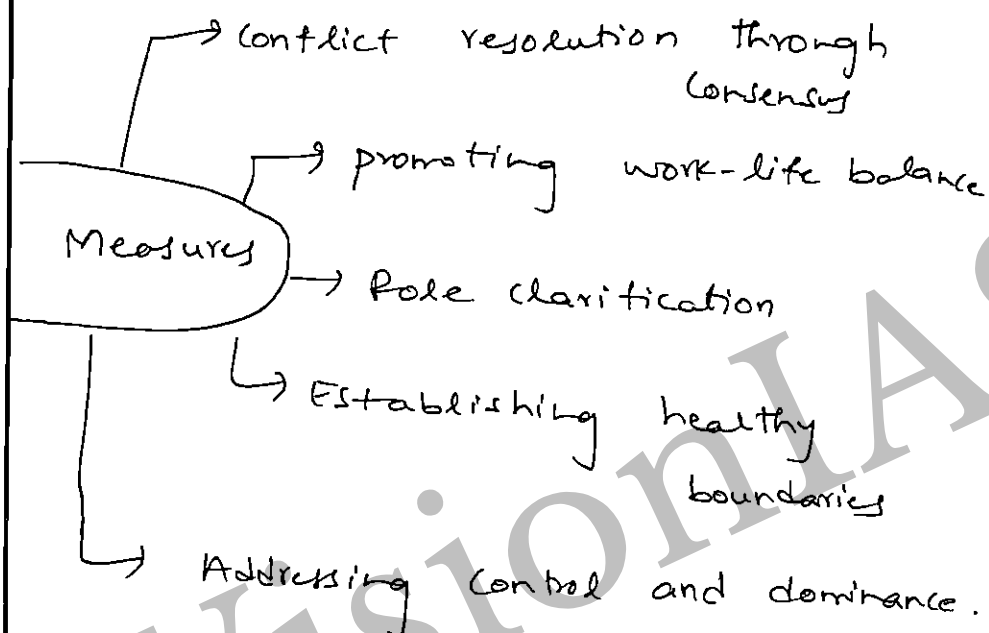 Conflict resolution through
Consensus
promoting work-life balance
Measures
Role clarification
Establishing healthy
boundaries
Addressing Control and dominance.
VisionIAS